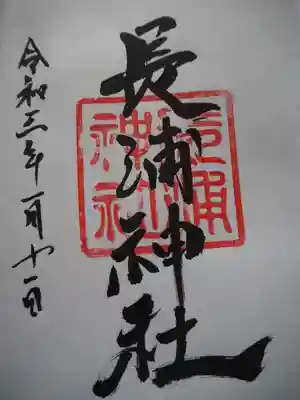 長浦神社
令和三年一月十一日
長浦神社